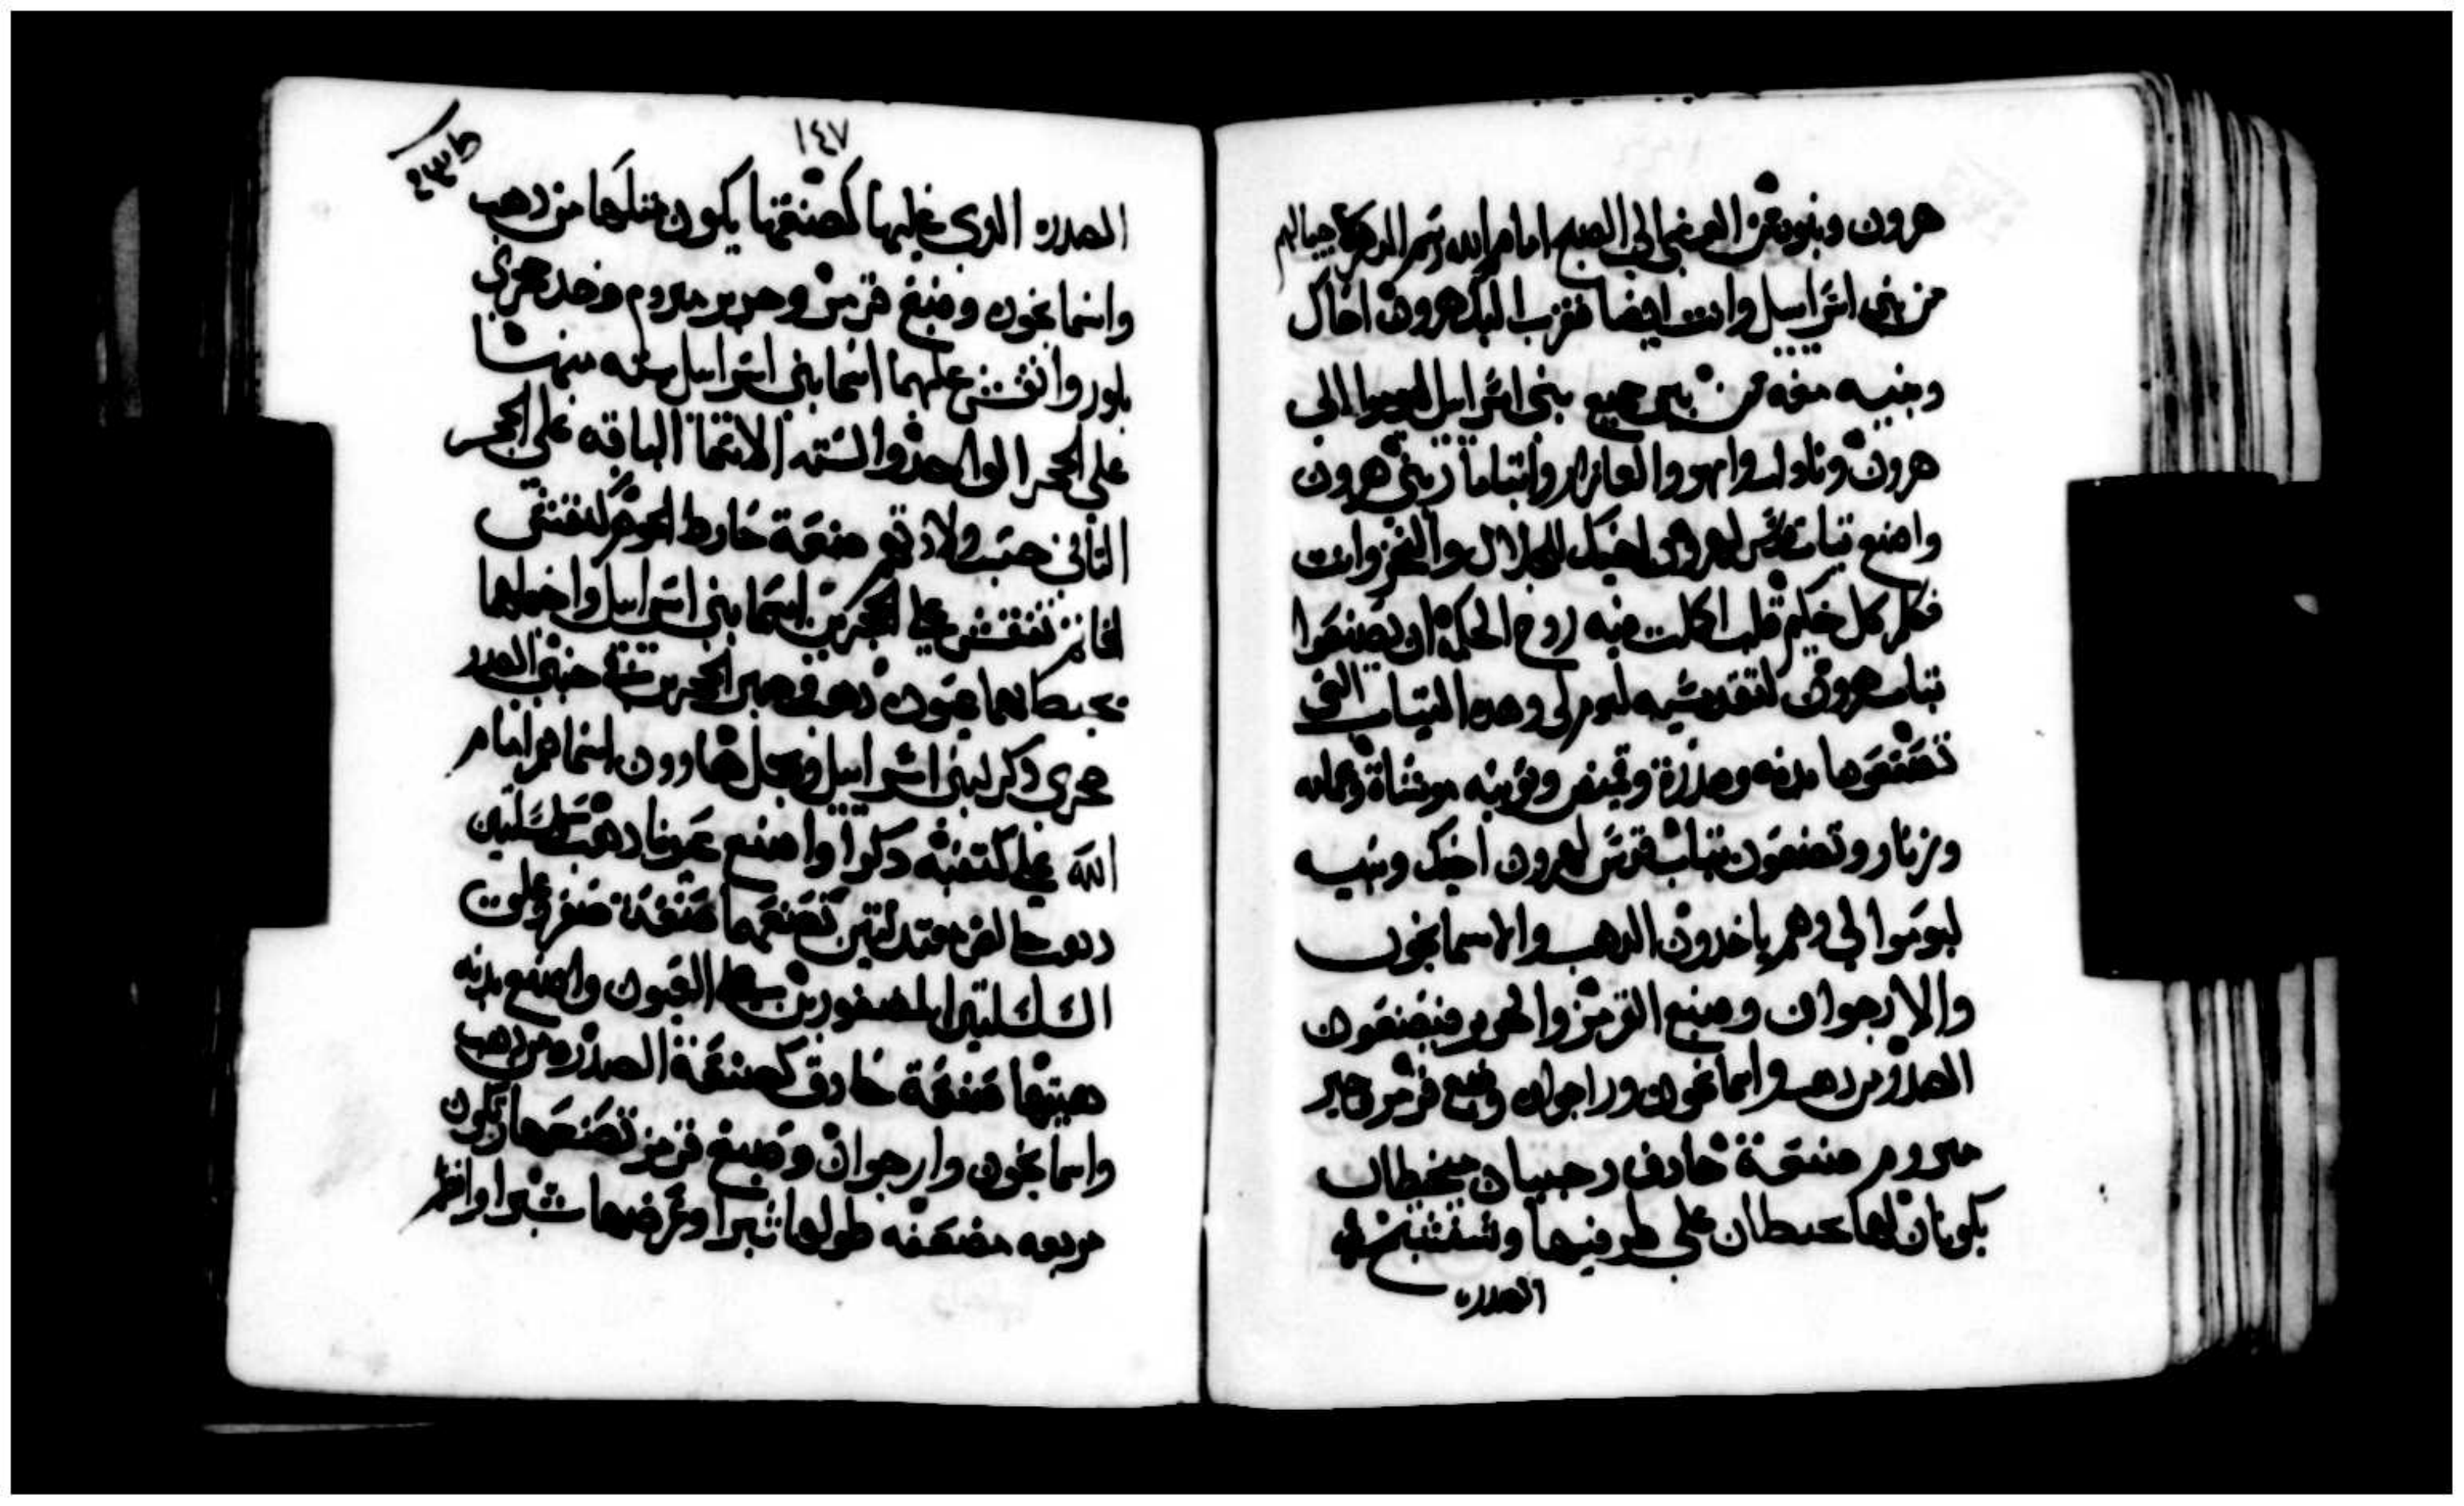 هرون وبنوه من العشا الى الصبح امام الله رسم الدهر لاجيالهم
من بني اسراييل وانت ايضا فقرب اليك هرون اخاك
وبنيه معه من بين جميع بني اسراييل ليوموا الي
هرون وناداب وابيهو والعازار وايتامار بني هرون
واصنع تياب قدس لهرون اخيك للجلال والفخر وانت
فكلم كل حكيم قلب اكملت فيه روح الحكمة ان يصنعوا
تياب هرون لتقديسه ليوم لي وهده التياب التي
تصنعوها بدنه وصدرة وقميص موشاة وعمامه
وزنار وتصنعون تياب قدس لهرون اخيك وبنيه
ليوموا لي وهم ياخدون الدهب والاسمانجون
والارجوان وصبغ القرمز والحرير فيصنعون
الصدره من دهب واسمانجون وارجوان وصبغ قرمز وحرير
مبروم صنعة حادق وجيبان محيطان
يكونان لها محيطان علي طرفيها
الصدره
١٤٧
الصدره الدي عليها كصنعتها يكون مثلها من دهب
واسمانجون وصبغ قرمز وحرير مبروم وخد حجري
بلور وانقش عليهما اسما بني اسراييل سته منها
علي الحجر الواحد والسته الاسما الباقيه علي الحجر
التاني حسب ولادتهم صنعة خارط الجوهر كنقش
الخاتم تنقش علي الحجرين اسما بني اسراييل واجعلها
محيط بهما عيون دهب وصير الحجرين علي جنبتي الصدره
حجري دكر لبني اسراييل ويحمل هارون اسماهم امام
الله علي كتفيه دكرا واصنع عيونا دهب وسلسلتين
دهب خالص معتدلتين تصنعهما صنعة ضفر وعلق
السلسلتين المضفورتين العيون واصنع بدنه
صنعة حادق كصنعة الصدره من دهب
واسمانجون وارجوان وصبغ قرمز تصنعها تكون
مربعه مضعفه طولها شبرا وعرضها شبرا وانظم